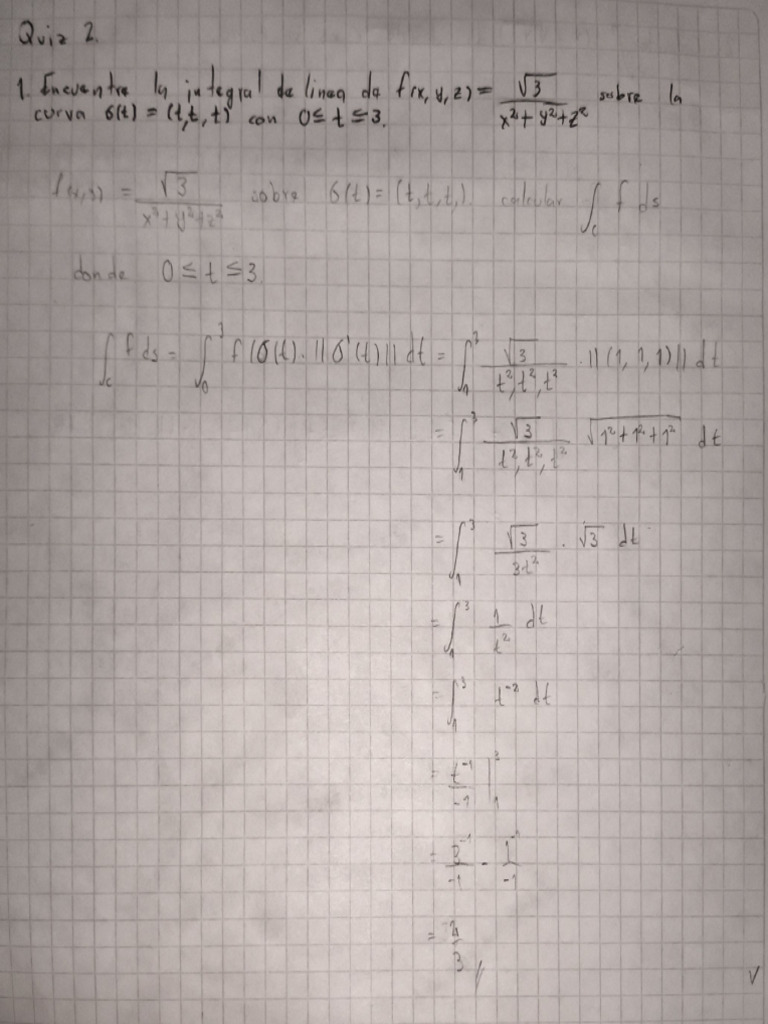 Quiz 2.
1. Encuentre la integral de linea de f(x, y, z) = √3 / (x² + y² + z²) sobre la
curva σ(t) = (t, t, t) con 0 ≤ t ≤ 3.
f(x,y) = √3 / (x² + y² + z²) sobre σ(t) = (t, t, t,). calcular ∫_c f ds
donde 0 ≤ t ≤ 3
∫_c f ds = ∫_0^3 f(σ(t). ||σ'(t)|| dt = ∫_1^3 √3 / (t², t², t²) . ||(1, 1, 1)|| dt
= ∫_1^3 √3 / (t², t², t²) √(1² + 1² + 1²) dt
= ∫_1^3 √3 / 3t² . √3 dt
= ∫_1^3 1 / t² dt
= ∫_1^3 t⁻² dt
= t⁻¹ / -1 |_1^3
= 3⁻¹ / -1 - 1⁻¹ / -1
= 2 / 3